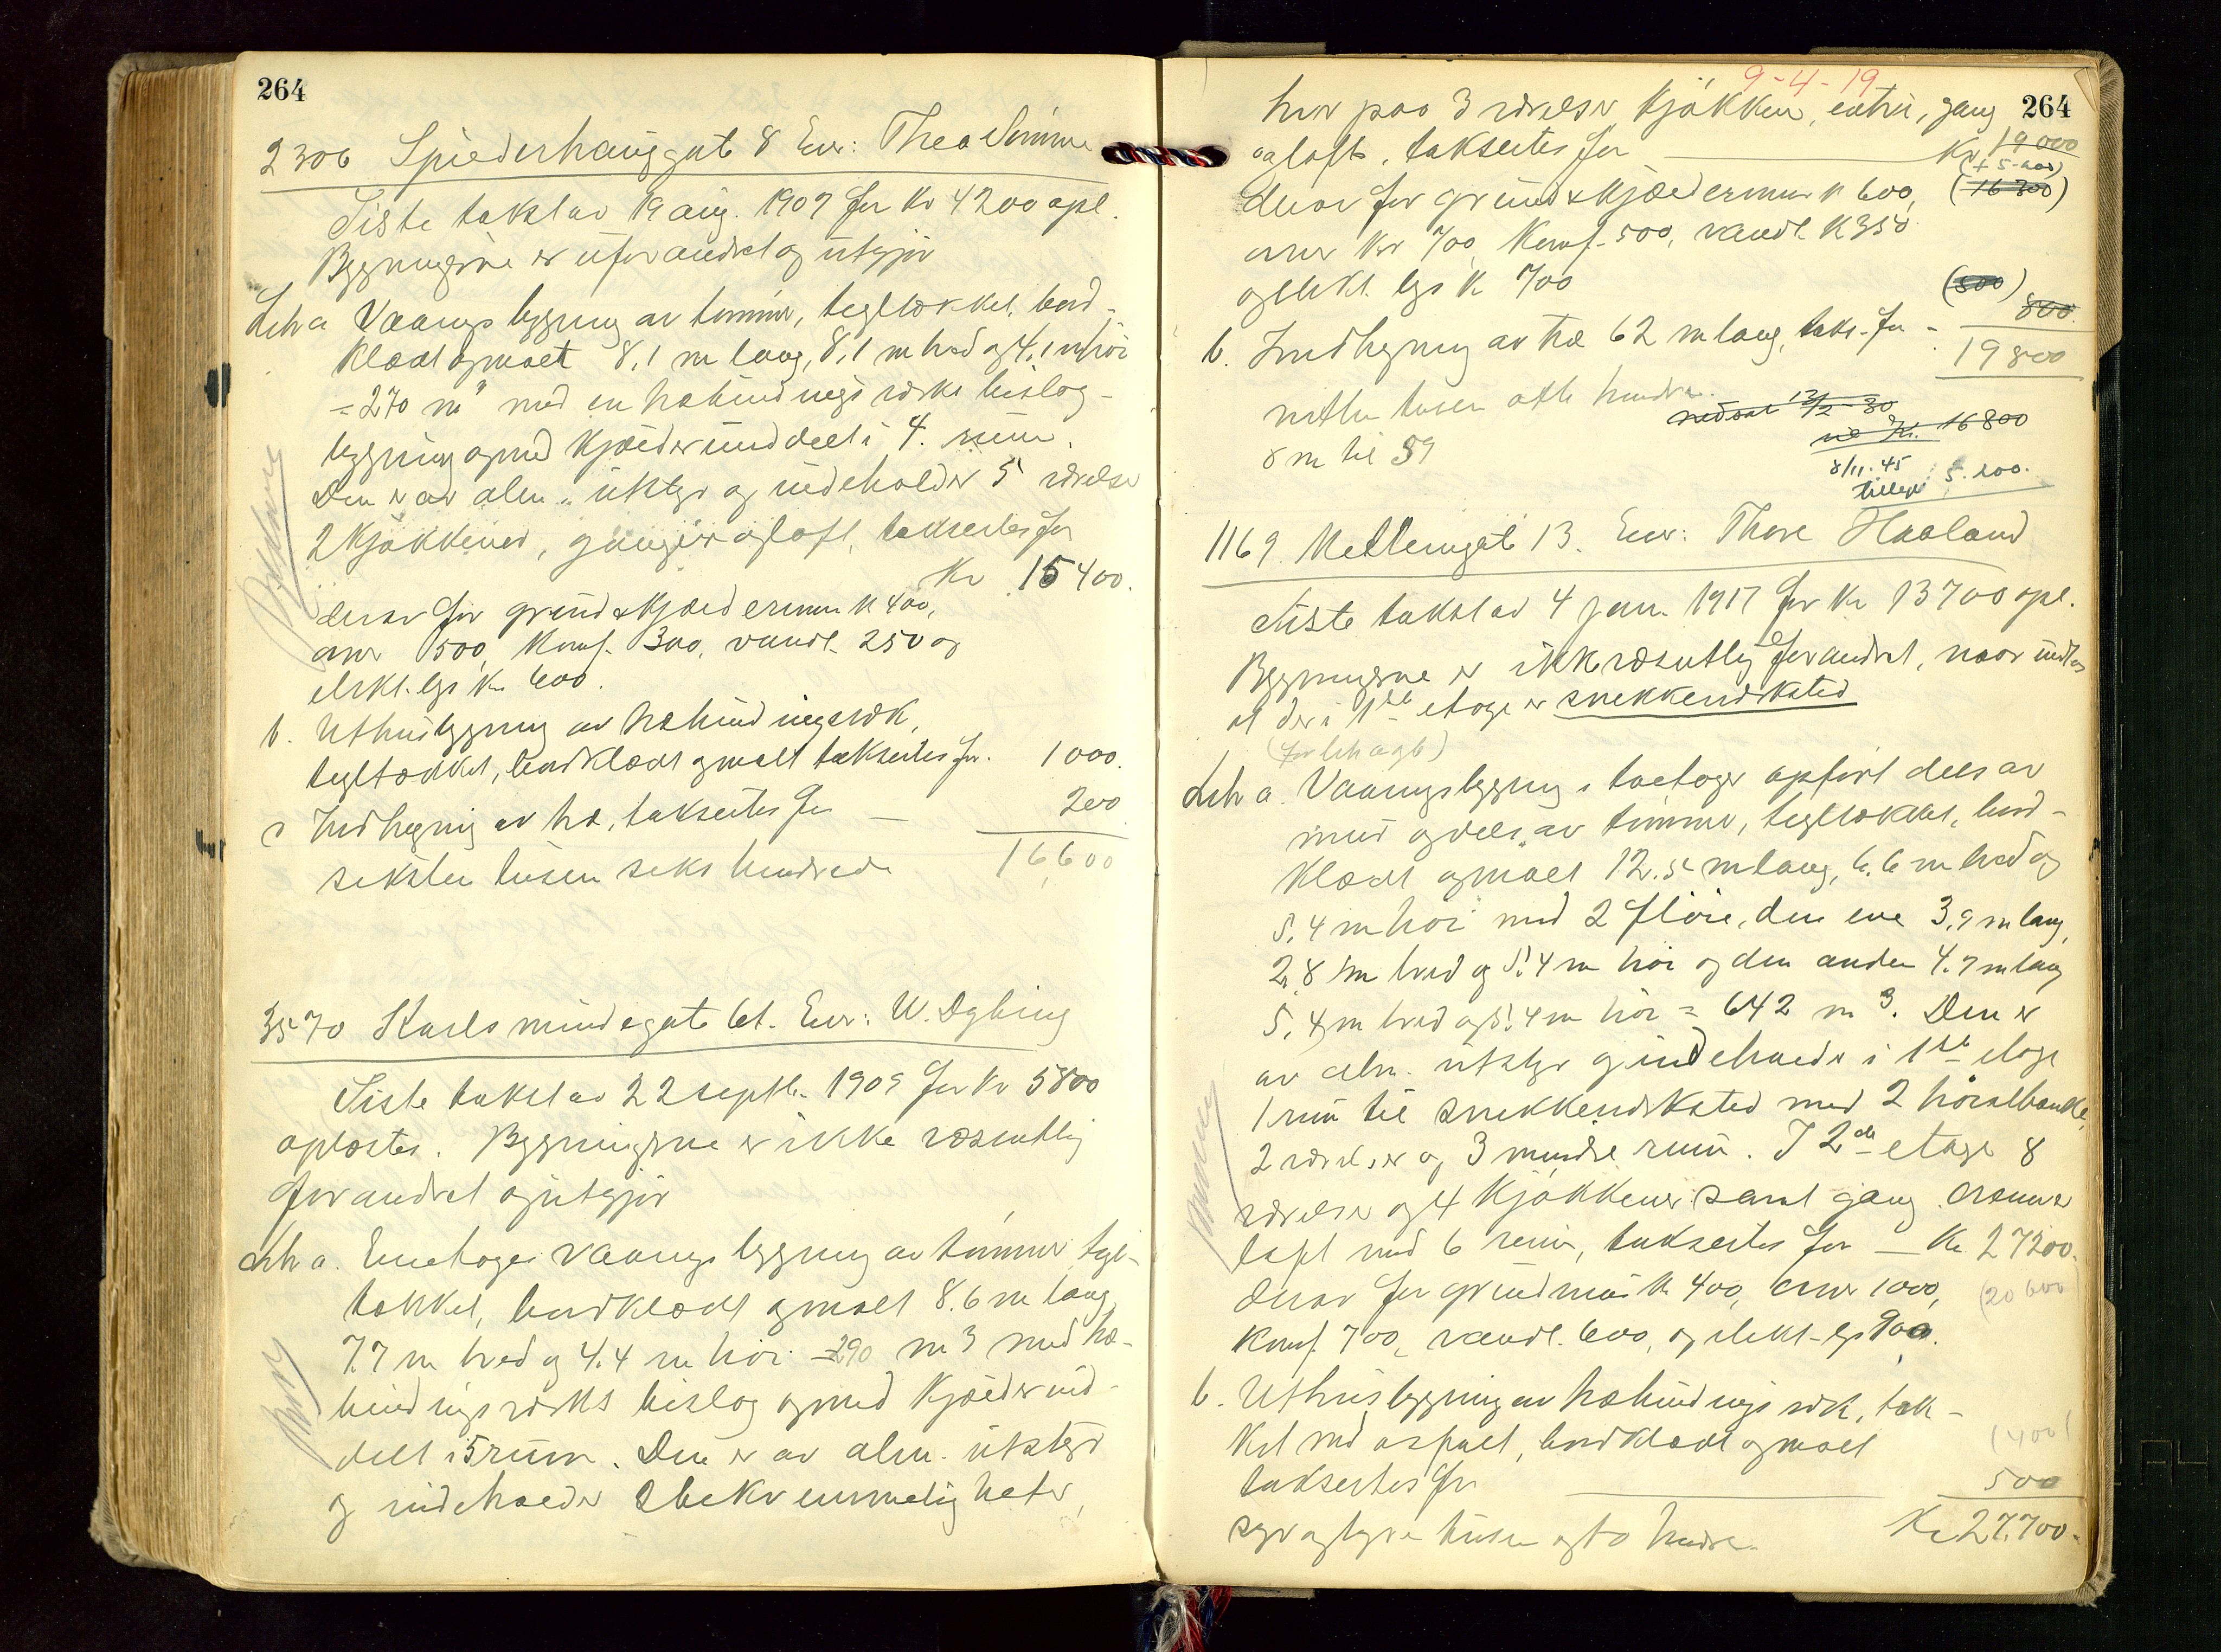 264
2306 Spiederhauggate 8 Eier: Thea Simine
Siste takst av 19 aug. 1907 for Kr 4200 opl.
Bygningerne er uforandret og utgjør
Litr a Vaaningsbygning av tømmer, tegltækket, bord-
klædt og malt 8,1 m lang, 8,1 m bred og 4,1 m høi
= 270 m³ med en træbindingsverks bislag-
bygning og med kjælder inddelt i 4 rum.
Den er av alm. utstyr og indeholder 5 værelser
2 kjøkkener, ganger og loft, taksertes for
Kr 15400.
derav for grund & kjældermur K 400,
ovner 500, komf. 300, vandl. 250 og
elekt. lys Kr 600.
b. Uthusbygning av træbindingsverk,
tegltækket, bordklædt og malt taksertes for. 1000.
c Indhegning av træ, taksertes for 200
seksten tusen seks hundrede 16,600
3570 Karlsmindegate 61. Eier: W. Dybing
Siste takst av 22 septb. 1909 for Kr 5800
oplæstes. Bygningerne er ikke væsentlig
forandret og utgjør
Litr a. Enetages vaaningsbygning av tømmer, tegl-
tækket, bordklædt og malt 8.6 m lang,
7.7 m bred og 4.4 m høi = 290 m3 med træ-
bindingsverks bislag og med kjælder ind-
delt i 5 rum. Den er av alm. utstyr
og indeholder 2 bekvemmeligheter,
9-4-19
264
hver paa 3 værelser, kjøkken, entre, gang
og loft, taksertes for Kr 19000
(+ 5-)
(16300)
derav for grund & kjældermur K 600,
ovner Kr 700, Komf. 500, vandl. K 350
og elekt. lys K 700
(500)
b. Indhegning av træ 62 m lang, takst. for - 800
19800
nitten tusen otte hundre.
nedsat 13/2-30
til Kr. 16800
8 m til 59
8/11.45
tillegg 5.200.
1169. Mellemgate 13. Eier: Thore Haaland
Siste takst av 4 jan. 1917 for Kr 13700 opl.
Bygningerne er ikke væsentlig forandret, naar undtas
at der i 1ste etage er snekkerverksted
(for litr a og b)
Litr a. Vaaningsbygning i to etager opført dels av
mur og dels av tømmer, tegltækket, bord-
klædt og malt 12.5 m lang, 6.6 m bred og
5.4 m høi med 2 fløie, den ene 3.9 m lang,
2.8 m bred og 5.4 m høi og den anden 4.7 m lang
5.4 m bred og 5.4 m høi = 642 m3. Den er
av alm. utstyr og indeholder i 1ste etage
1 rum til snekkerverksted med 2 høvelbænke,
2 værelser og 3 mindre rum. I 2den etage 8
værelser og 4 kjøkkener samt gang.
loft med 6 rum, taksertes for — Kr 27200.
derav for grundmur K 400, ovner 1000, (20600)
Komf. 700, vandl. 600, og elekt. lys 900.
b. Uthusbygning av træbindingsverk, tæk-
ket med asfalt, bordklædt og malt (400)
taksertes for 500
syv og tyve tusen og to hundre. Kr 27.700.